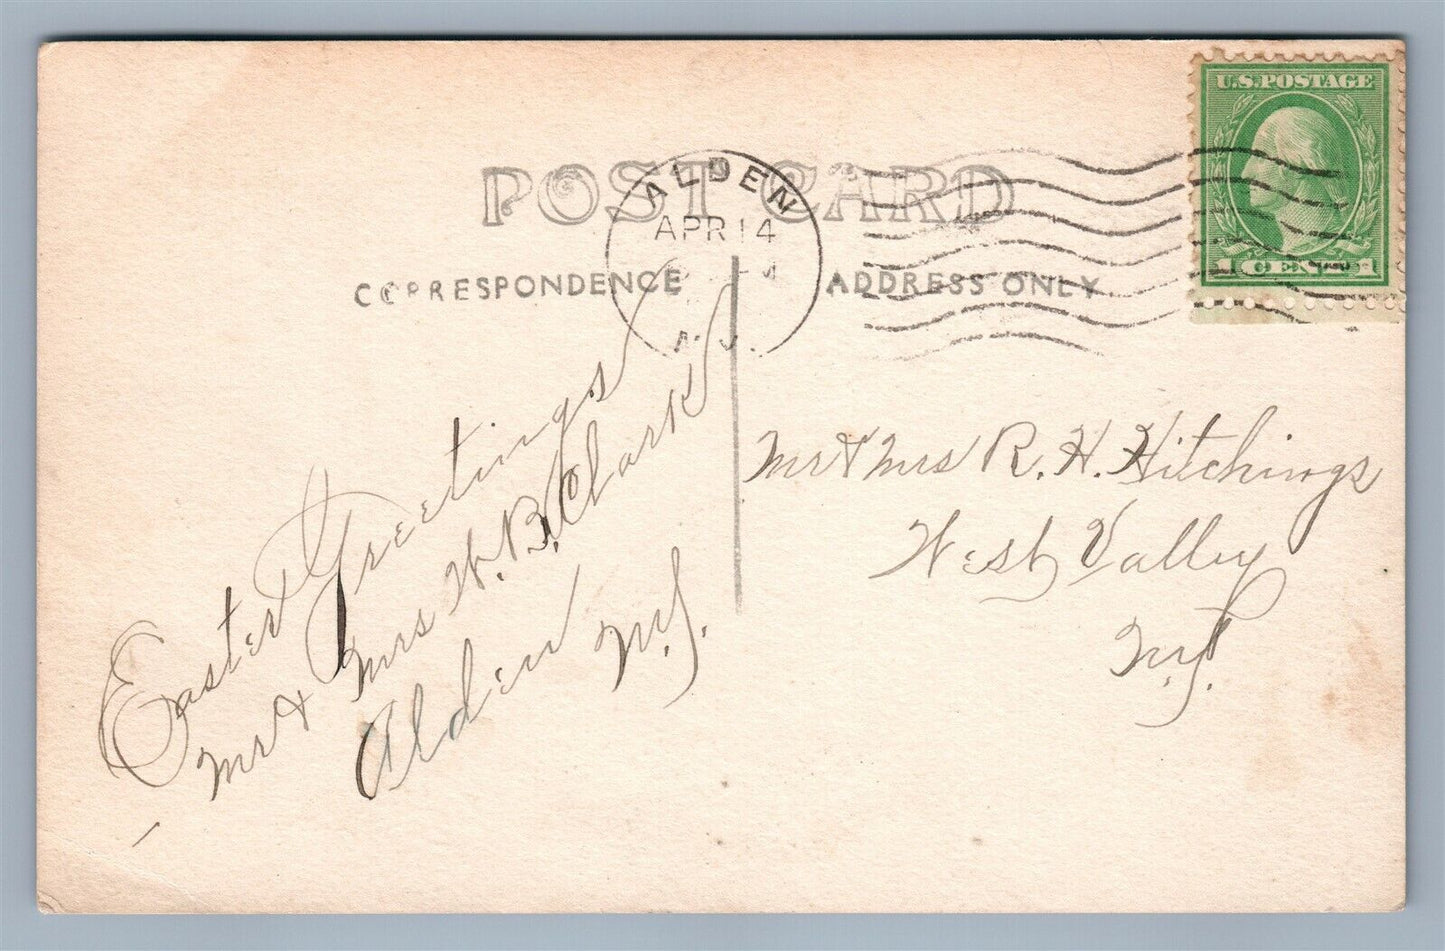 U.S.POSTAGE
1 CENT 1
POST CARD
ALDEN
APR 14
N.Y.
CORRESPONDENCE
ADDRESS ONLY
Easter Greetings
Mr & Mrs W. B. Clark
Alden N.Y.
Mr & Mrs R. H. Hitchings
West Valley
N.Y.